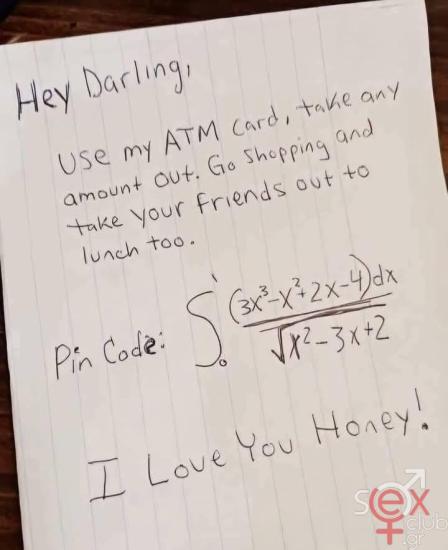 Hey Darling,
Use my ATM Card, take any
amount out. Go Shopping and
take your Friends out to
lunch too.
Pin Code: ∫₀¹ (3x³-x²+2x-4)dx
√x²-3x+2
I Love You Honey!
sex
club
.gr